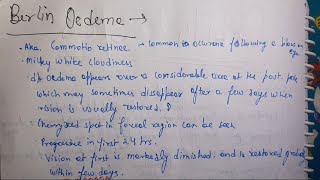 Berlin Oedema →
• Aka. Commotio retinae. • common to occurance following a blow on eye
• Milky white cloudiness
• dt oedema appears over a considerable area at the post. pole
which may sometimes disappear after a few days when
vision is usually restored.
• Cherry red spot in foveal region can be seen
Progressive in first 24 hrs.
• Vision at first is markedly diminished. and is restored gradual
within few days.